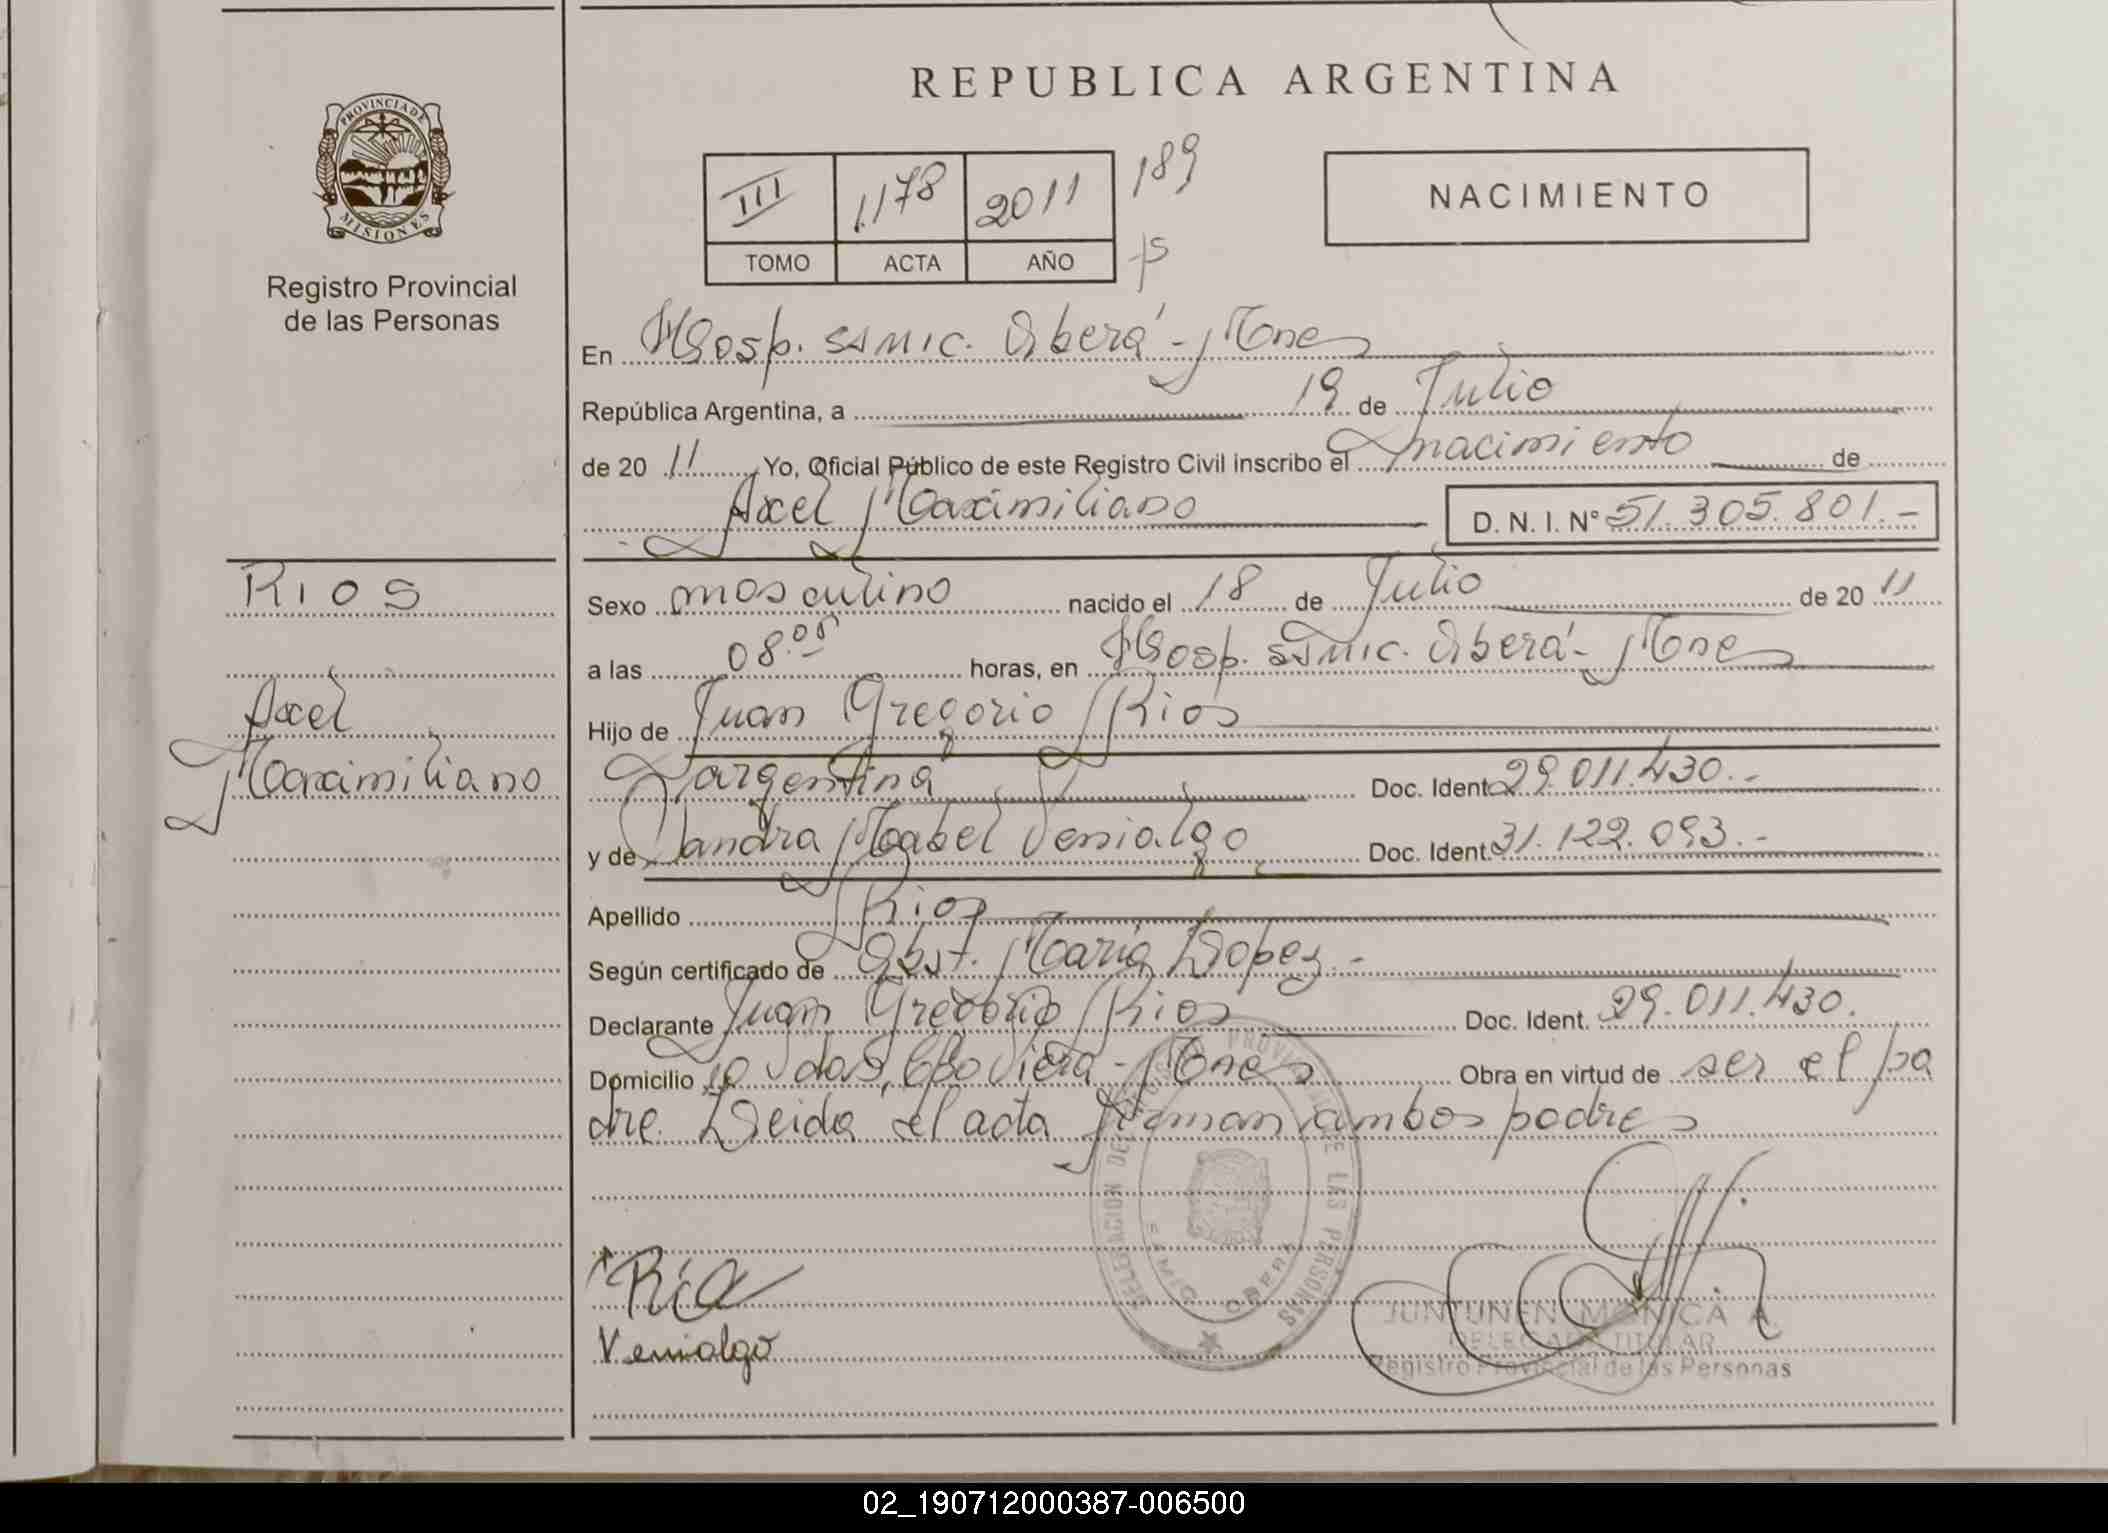 REPUBLICA ARGENTINA
PROVINCIA DE
MISIONES
Registro Provincial
de las Personas
III 1.178 2011 189
TOMO ACTA AÑO
NACIMIENTO
En Hosp. SAMIC. Oberá - Mnes
República Argentina, a 19 de Julio
de 20 11 Yo, Oficial Público de este Registro Civil inscribo el nacimiento de
Axel Maximiliano D. N. I. N° 51.305.801.-
RIOS
Axel
Maximiliano
Sexo masculino nacido el 18 de Julio de 20 11
a las 08.05 horas, en Hosp. SAMIC. Oberá - Mnes
Hijo de Juan Gregorio Rios
argentina Doc. Ident. 29.011.430.-
y de Sandra Mabel Venialgo Doc. Ident. 31.122.093.-
Apellido Rios
Según certificado de Obst. Maria Lopez.-
Declarante Juan Gregorio Rios Doc. Ident. 29.011.430.
Domicilio - Mnes Obra en virtud de ser el pa
dre. Leida el acta firman ambos padres
PROVINCIAL DE LAS PERSONAS
DELEGACION
SAMIC OBERA
Venialgo
JUNTUNEN MONICA A.
DELEGADA TITULAR
Registro Provincial de las Personas
02_190712000387-006500